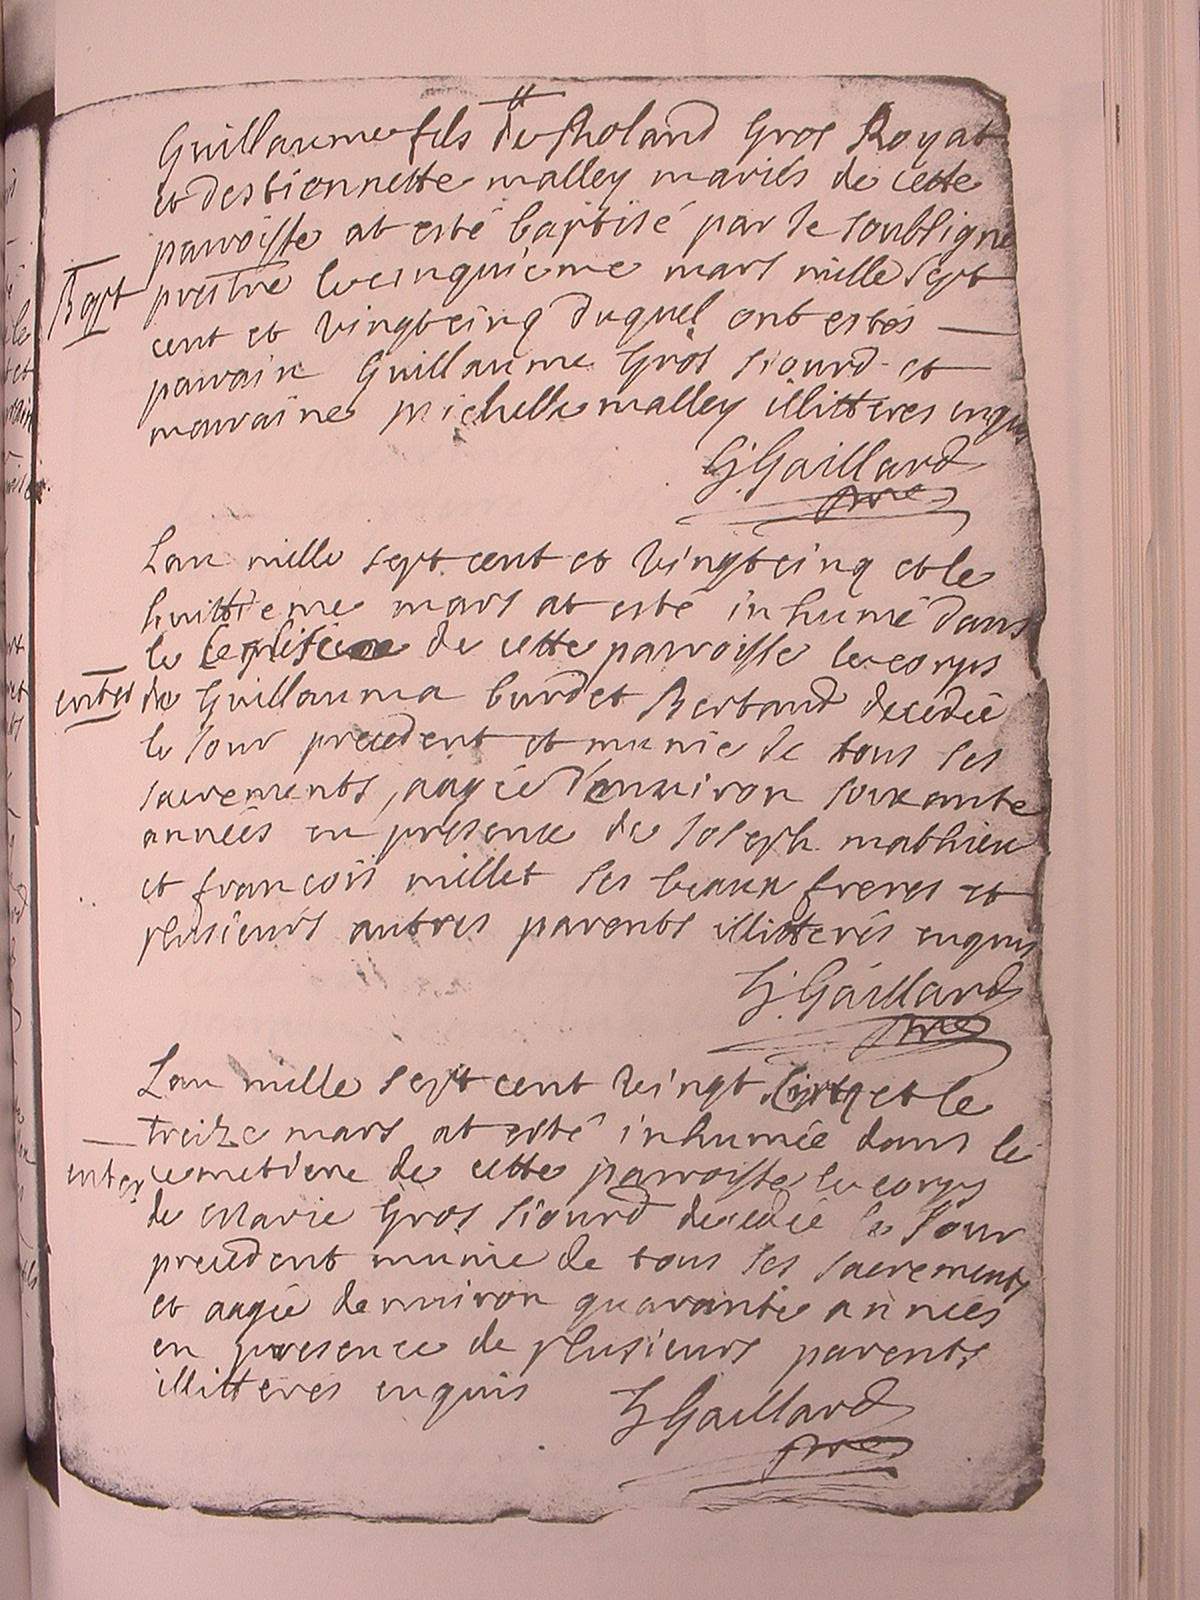 Guillaume fils de Rholand Gros Royat
et destiennette malley mariés de cette
parroisse at esté baptisé par le soubsigné
Bapt prestre le cinquieme mars mille sept
cent et vingtcinq duquel ont estés
parrain Guillaume Gros siourd et
marraine michelle malley illitteres enquis
G. Gaillard
ptre
Lan mille sept cent et vingtcinq et le
huittieme mars at esté inhumé dans
le de cette parroisse le corps
enter de Guillauma burdet Bertrand decedée
le Jour precedent et munie de tous ses
sacrements, aagée denuiron soixante
années en presence de Joseph mathieu
et françois millet ses beaux freres et
plusieurs autres parents illitterés enquis
G. Gaillard
ptre
Lan mille sept cent vingt cinq et le
treize mars at esté inhumée dans le
enter cemetiere de cette parroisse le corps
de Marie Gros siourd decedée le Jour
precedent munie de tous ses sacrements
et aagée denuiron quarante années
en presence de plusieurs parents
illitteres enquis G Gaillard
ptre